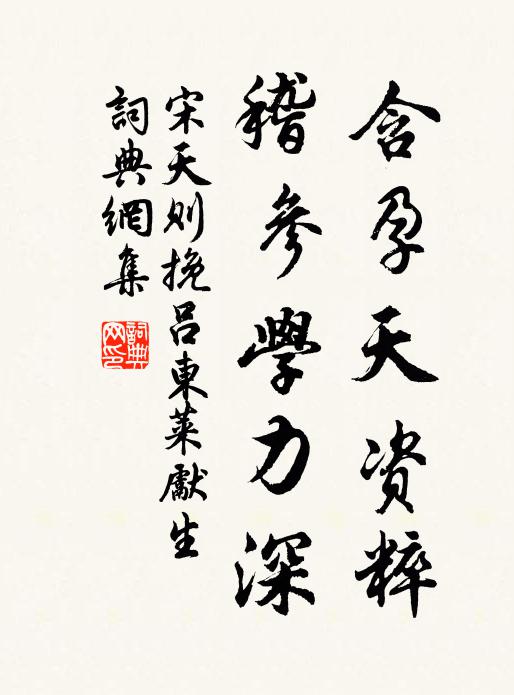 含孕天资粹
稽參學力深
宋天則挽呂東萊獻生
詞典網集
詞典網印